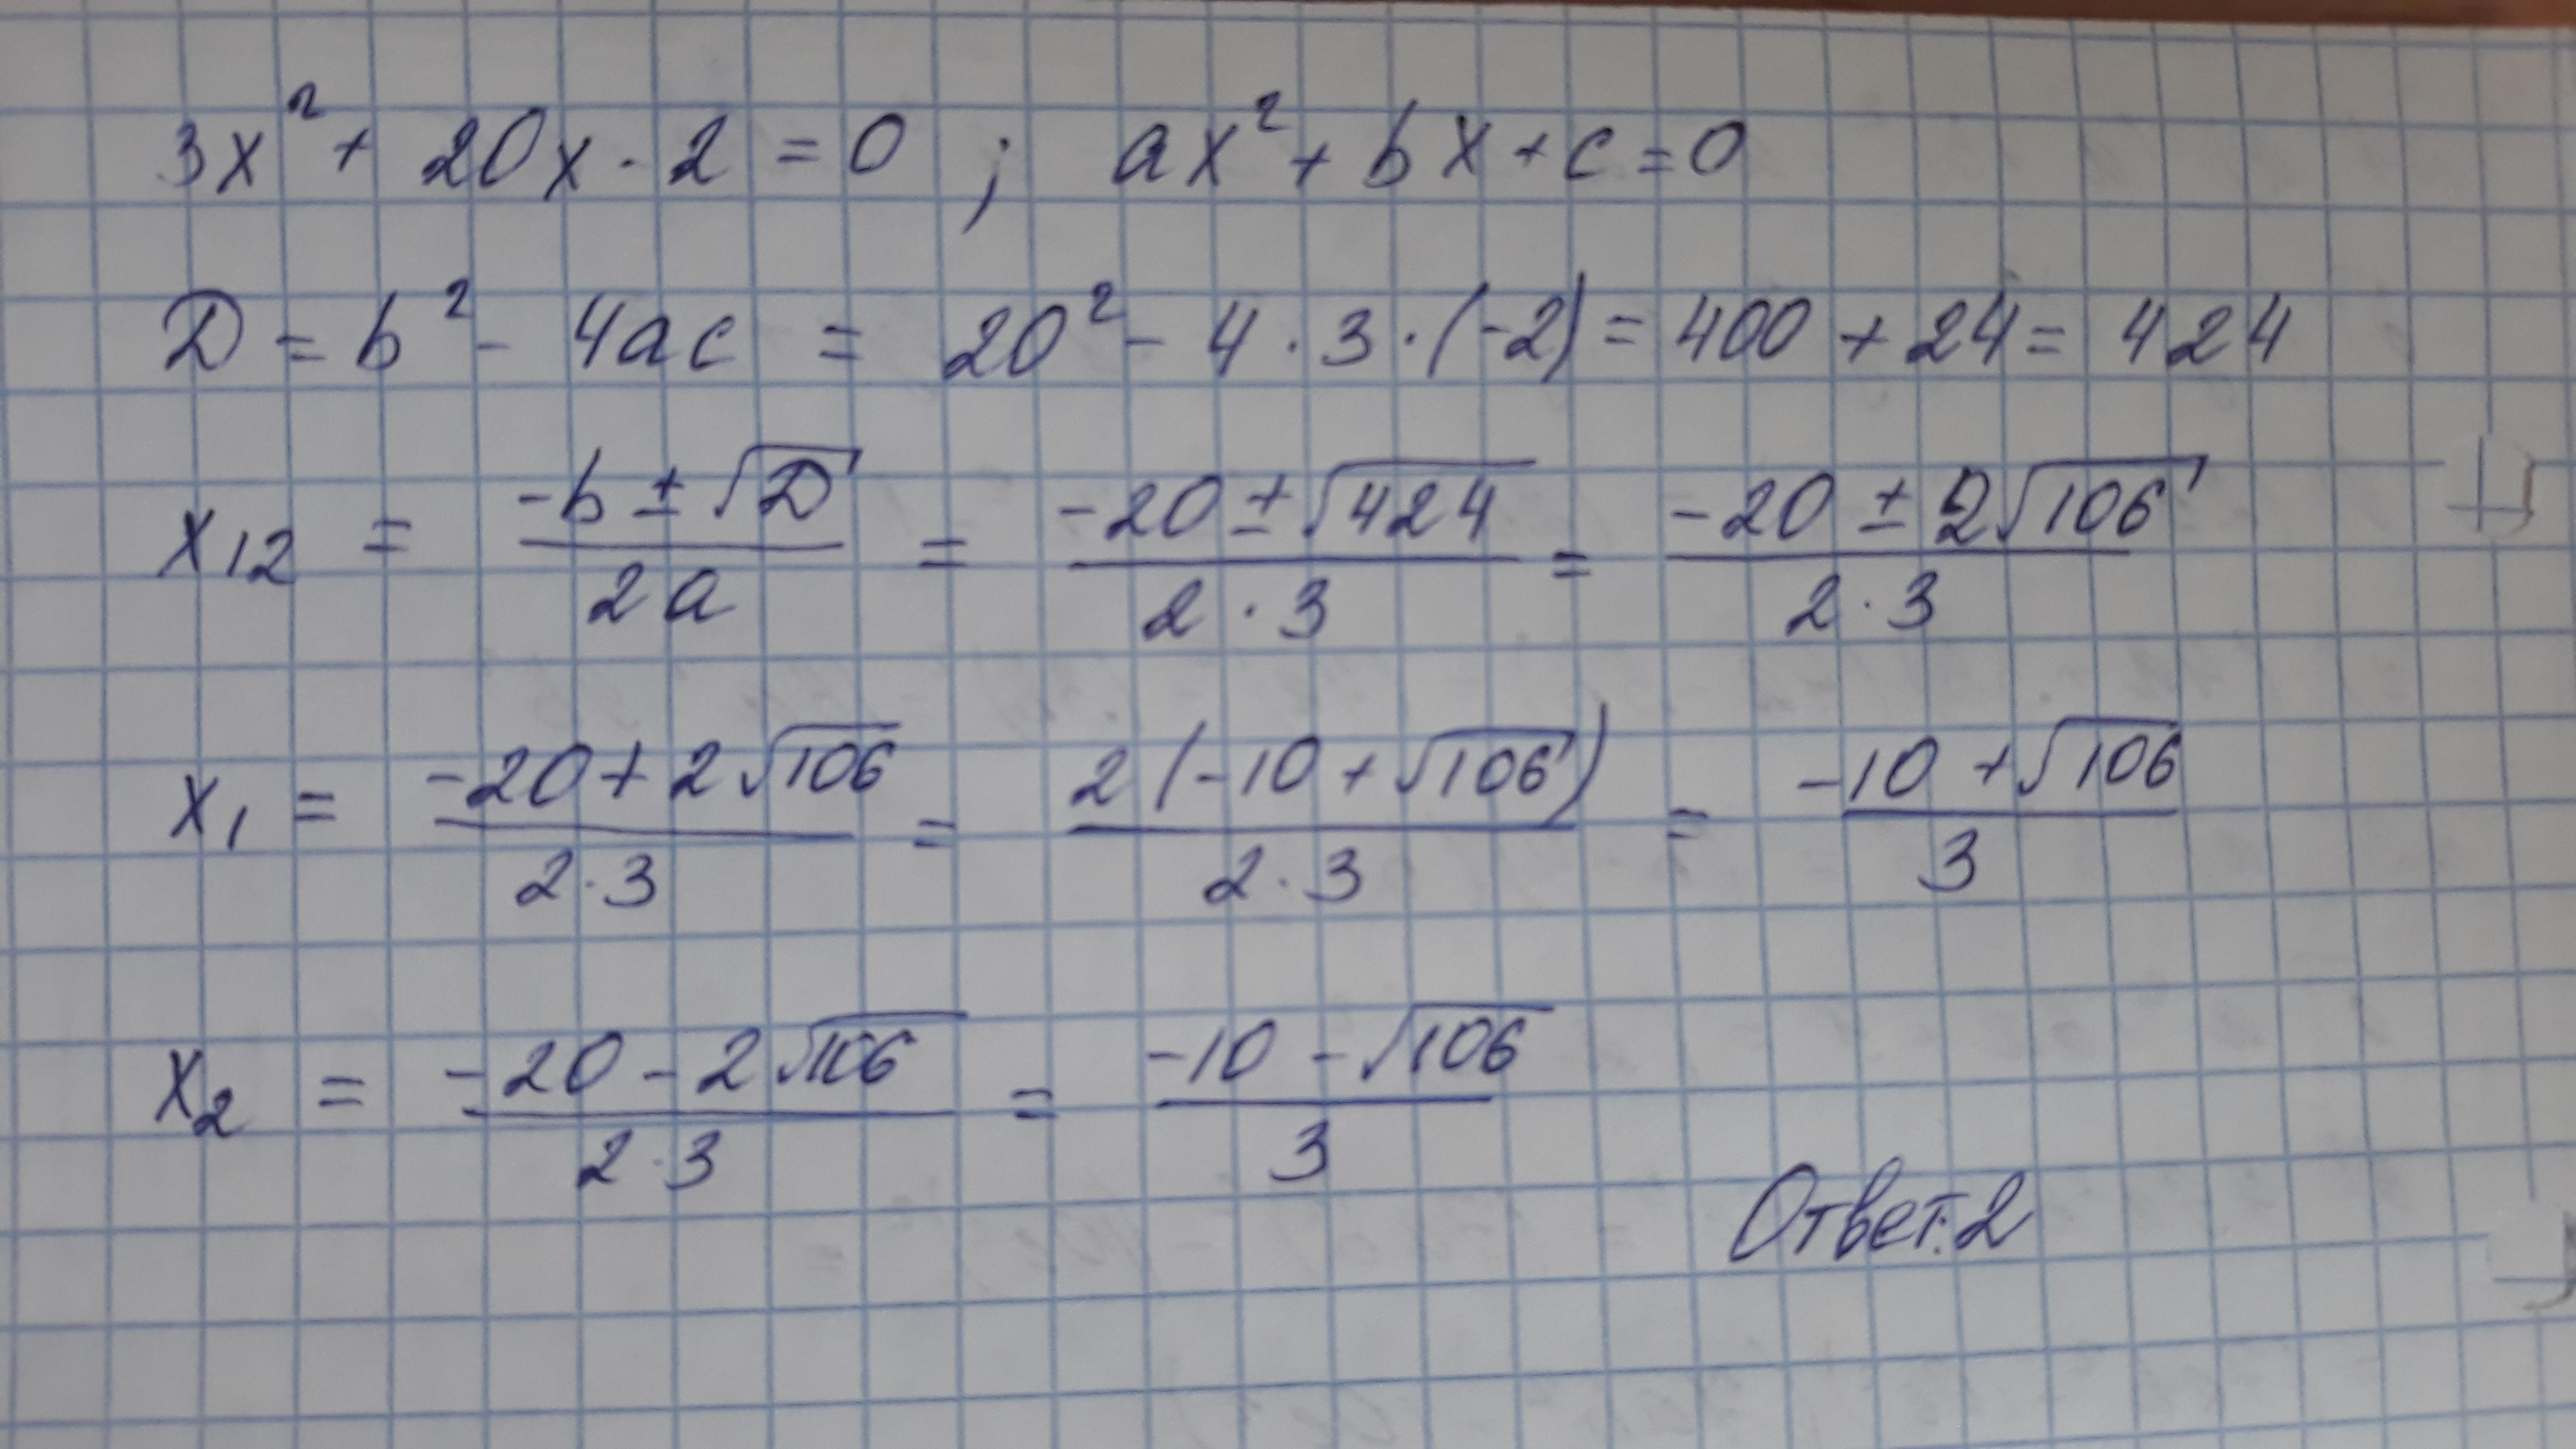 3x² + 20x - 2 = 0 ; ax² + bx + c = 0
D = b² - 4ac = 20² - 4 · 3 · (-2) = 400 + 24 = 424
x₁₂ = (-b ± √D)/(2a) = (-20 ± √424)/(2 · 3) = (-20 ± 2√106)/(2 · 3)
x₁ = (-20 + 2√106)/(2 · 3) = (2(-10 + √106))/(2 · 3) = (-10 + √106)/3
x₂ = (-20 - 2√106)/(2 · 3) = (-10 - √106)/3
Ответ: 2